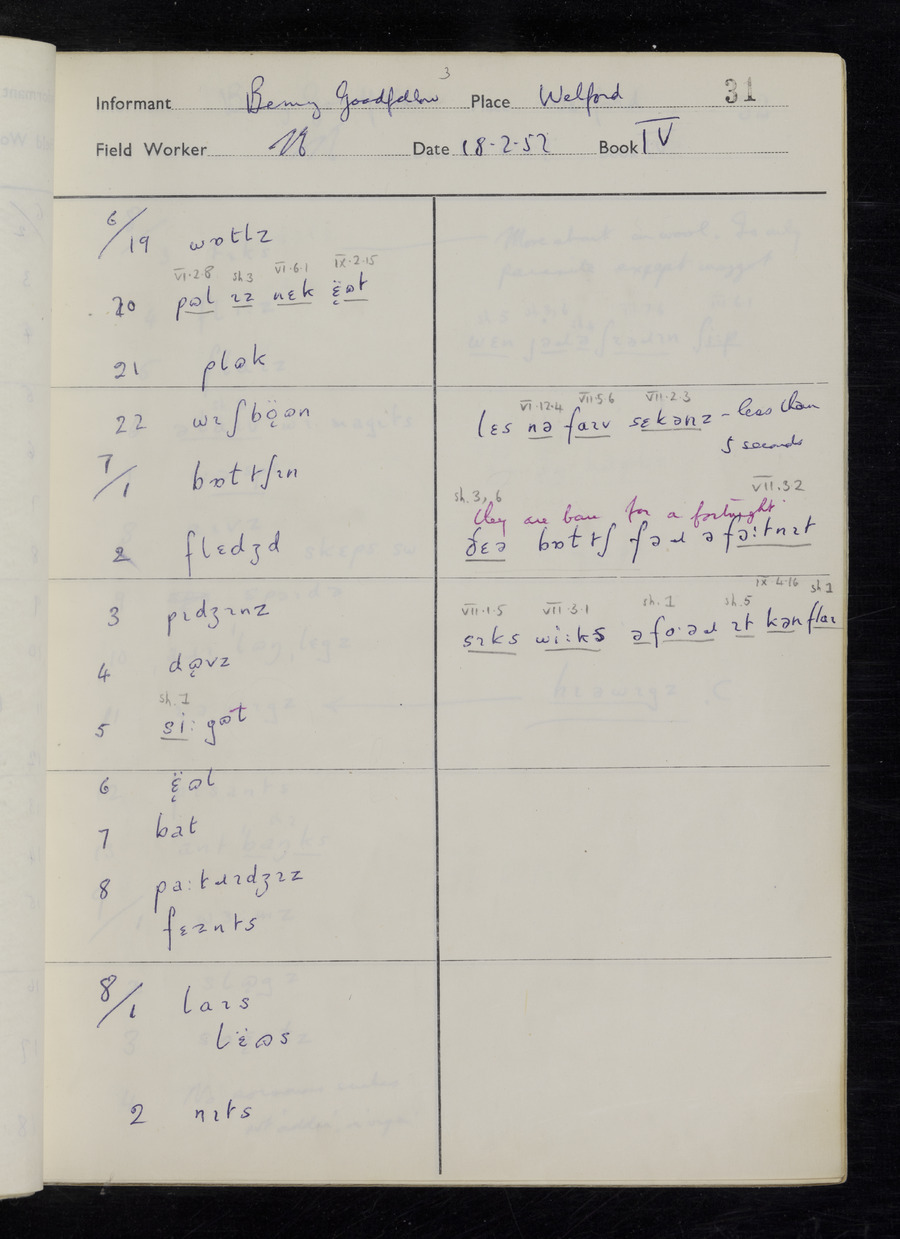 3
Informant Benny Goodfellow Place Welford 31
Field Worker Date 18-2-52 Book IV
6/19 wɒtlz
VI·2·8 sh 3 VI·6·1 IX·2·15
20 pɷl ɪz nɛk ɛ̈ɷt
21 plɷk
22 wɪʃbö̜ɷn
VI·12·4 VII·5·6 VII·2·3
lɛs nə faɪv sɛkənz – less than
5 seconds
7/1 bɒttʃɪn
sh. 3, 6 VII.3 2
they are bare for a fortnight
2 flɛdʒd
ðɛə bɒttʃ fəɹ ə fɔ:tnɪt
IX·4·16 sh 1
3 pɪdʒɪnz
VII·1·5 VII·3·1 sh. 1 sh. 5
sɪks wi:ks əfo·əɹ ɪt kən flaɪ
4 dɷ̜vz
sh. 1
5 si: gɷt
6 ɛ̈ɷl
7 bat
8 pa:tɹɪdʒɪz
fɛznts
8/1 laɪs
lɛ̈ɷs
2 nɪts